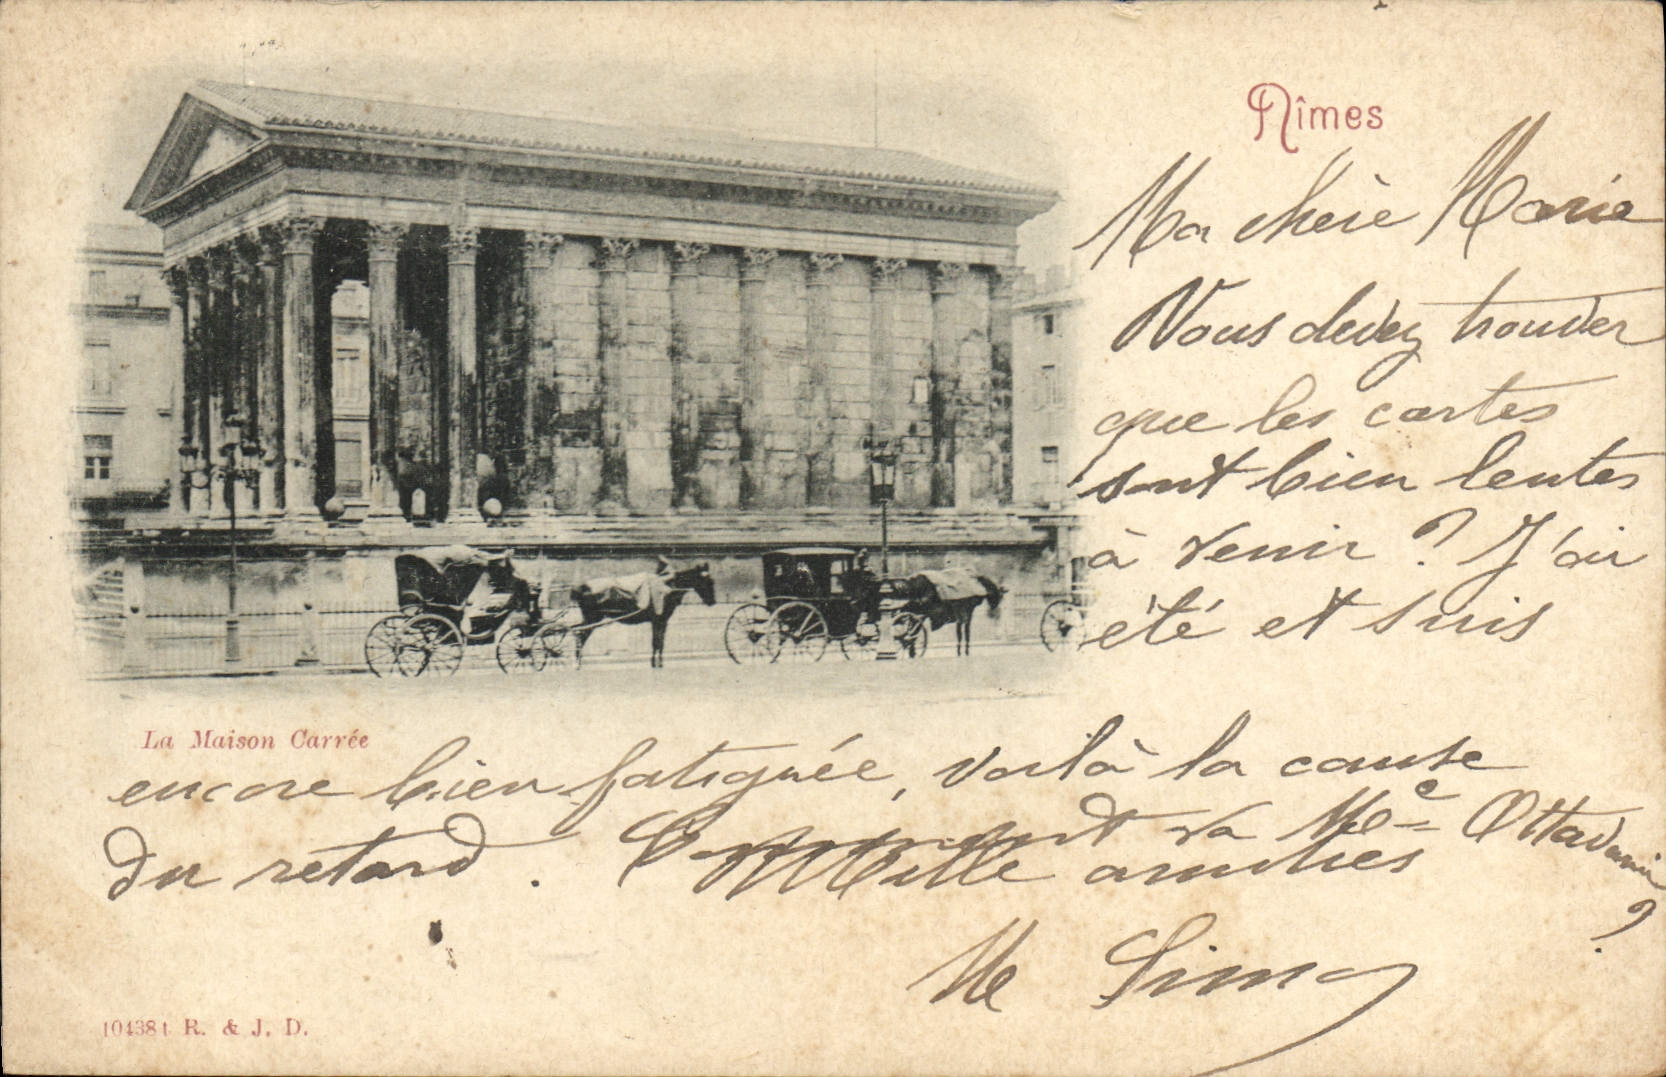 Nîmes
Ma chère Marie
Vous devez trouver
que les cartes
sont bien lentes
à venir ? J'ai
été et suis
La Maison Carrée
encore bien fatiguée, voilà la cause
du retard. Comment va Me Ottavini ?
Mille amitiés
M Sim
104384 R. & J. D.